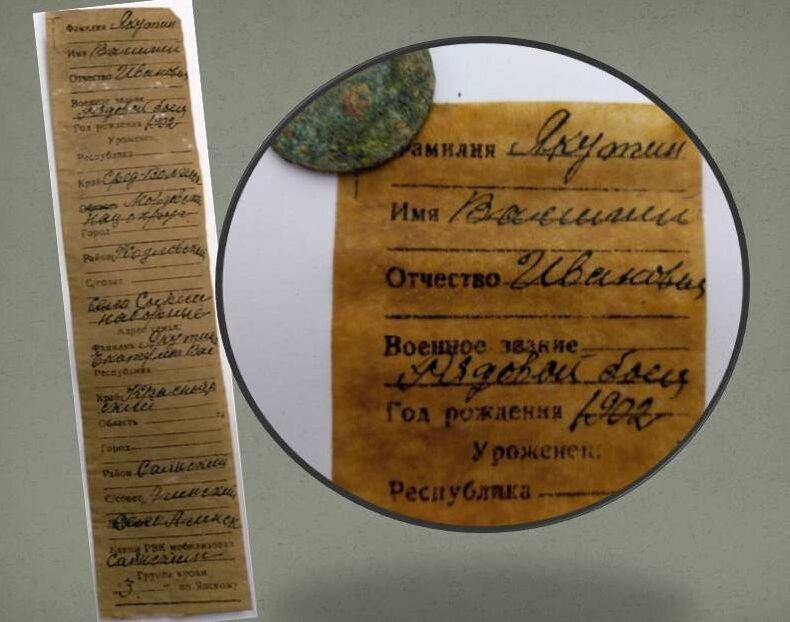 Фамилия Якутин
Имя Василий
Отчество Иванович
Военное звание
Рядовой боец
Год рождения 1902
Уроженец:
Республика
Край Сред-Волжск
Мордовск
Нац округ
Город
Район
С/совет
Село
Адрес семьи:
Фамилия Якутин
Екатерина
Республика
Край Краснояр
ский
Область
Город
Район Саянский
С/совет Агинский
Село Агинск
Каким РВК мобилизован
Саянским
Группа крови
по Янскому
Фамилия Якутин
Имя Василий
Отчество Иванович
Военное звание
Рядовой боец
Год рождения 1902
Уроженец:
Республика